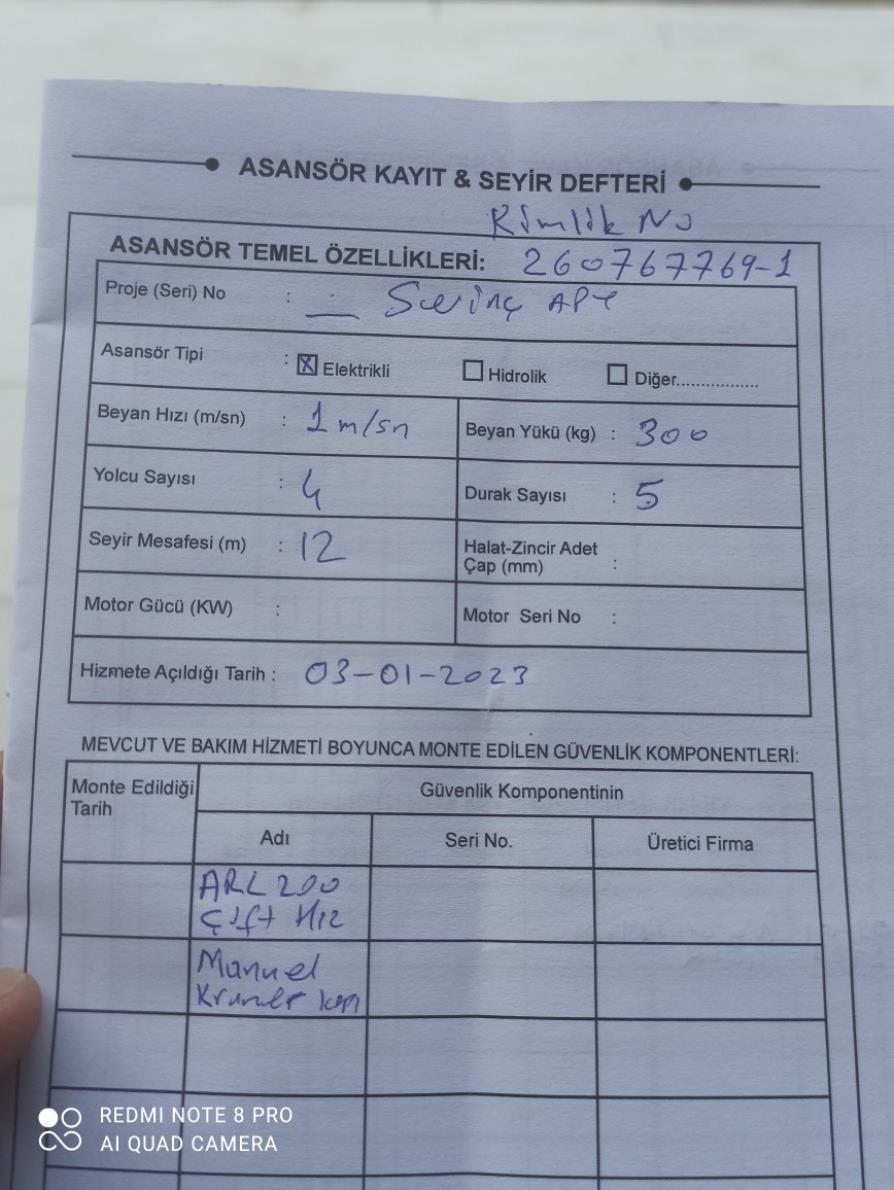 ASANSÖR KAYIT & SEYİR DEFTERİ
Kimlik No
ASANSÖR TEMEL ÖZELLİKLERİ: 260767769-1
Proje (Seri) No : Sevinç APT
Asansör Tipi : Elektrikli Hidrolik Diğer.................
Beyan Hızı (m/sn) : 1 m/sn Beyan Yükü (kg) : 300
Yolcu Sayısı : 4 Durak Sayısı : 5
Seyir Mesafesi (m) : 12 Halat-Zincir Adet
Çap (mm) :
Motor Gücü (KW) : Motor Seri No :
Hizmete Açıldığı Tarih : 03-01-2023
MEVCUT VE BAKIM HİZMETİ BOYUNCA MONTE EDİLEN GÜVENLİK KOMPONENTLERİ:
Monte Edildiği
Tarih
Güvenlik Komponentinin
Adı Seri No. Üretici Firma
ARL 200
Çift Hız
Manuel
REDMI NOTE 8 PRO
AI QUAD CAMERA